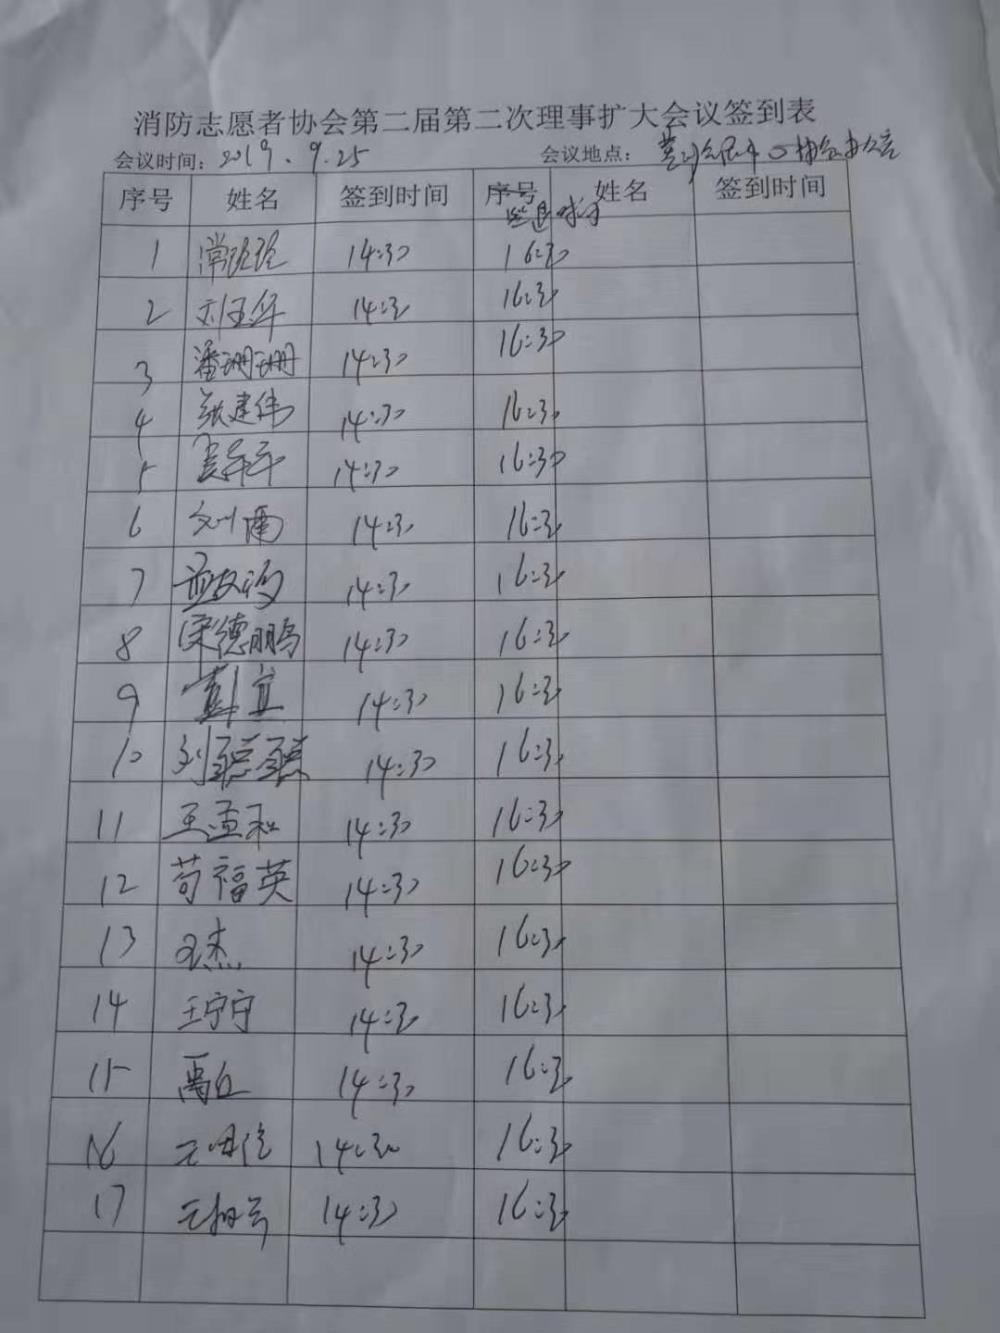 消防志愿者协会第二届第二次理事扩大会议签到表
会议时间：2019.9.25 会议地点：
序号 姓名 签到时间 序号 姓名 签到时间
签退时间
1 常玲玲 14:30 16:30
2 刘玉华 14:30 16:30
3 潘珊珊 14:30 16:30
4 张建伟 14:30 16:30
5 14:30 16:30
6 14:30 16:30
7 14:30 16:30
8 宋德鹏 14:30 16:30
9 14:30 16:30
10 刘聪聪 14:30 16:30
11 王孟和 14:30 16:30
12 苟福英 14:30 16:30
13 王杰 14:30 16:30
14 王宁宁 14:30 16:30
15 14:30 16:30
16 14:30 16:30
17 14:30 16:30